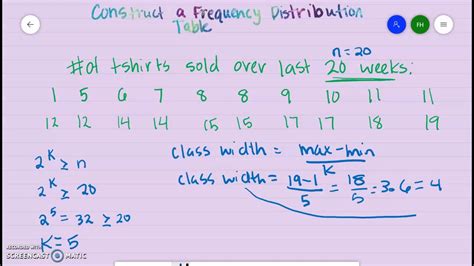 Construct a Frequency Distribution
Table
FH
n=20
#of tshirts sold over last 20 weeks:
1 5 6 7 8 8 9 10 11 11
12 12 14 14 15 15 17 17 18 19
2^K ≥ n
2^K ≥ 20
2^5 = 32 ≥ 20
K=5
class width = max-min
K
class width = 19-1 = 18 = 3.6 = 4
5 5
RECORDED WITH
SCREENCAST MATIC